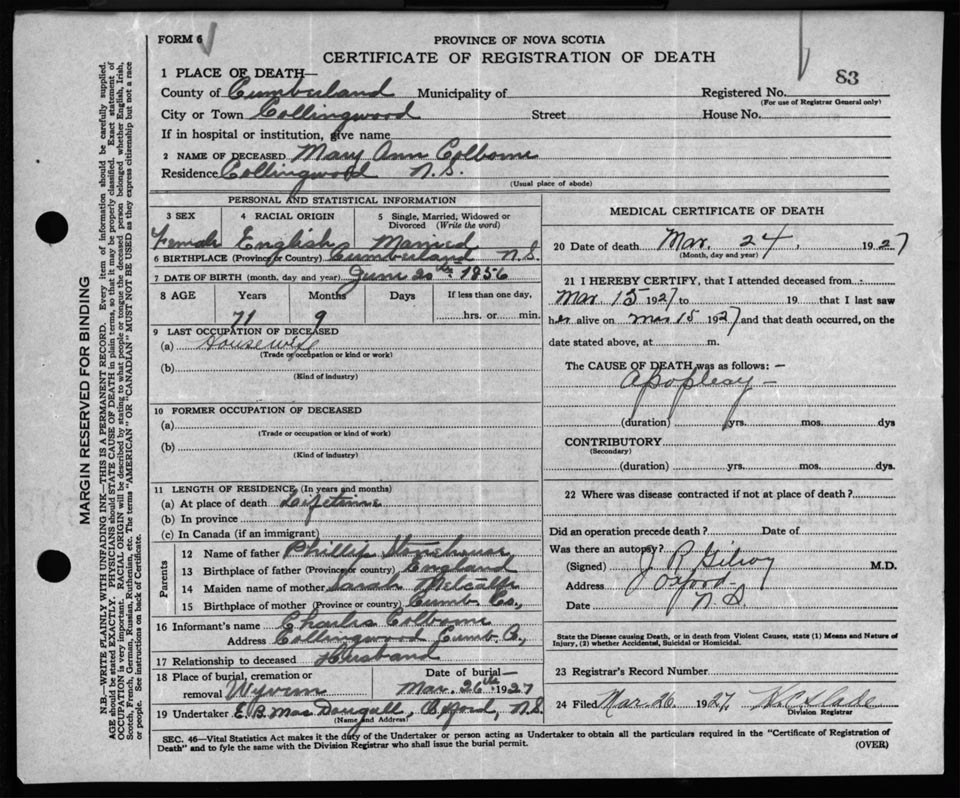 FORM 6
PROVINCE OF NOVA SCOTIA
CERTIFICATE OF REGISTRATION OF DEATH
83
1 PLACE OF DEATH—
County of Cumberland Municipality of Registered No.
(For use of Registrar General only)
City or Town Collingwood Street House No.
If in hospital or institution, give name
2 NAME OF DECEASED Mary Ann Colborne
Residence Collingwood N.S.
(Usual place of abode)
PERSONAL AND STATISTICAL INFORMATION
3 SEX 4 RACIAL ORIGIN 5 Single, Married, Widowed or
Divorced (Write the word)
Female English Married
6 BIRTHPLACE (Province or Country) Cumberland N.S.
7 DATE OF BIRTH (month, day and year) June 20th 1856
8 AGE Years Months Days If less than one day,
71 9 hrs. or min.
9 LAST OCCUPATION OF DECEASED
(a) Housewife
(Trade or occupation or kind or work)
(b)
(Kind of industry)
10 FORMER OCCUPATION OF DECEASED
(a)
(Trade or occupation or kind of work)
(b)
(Kind of industry)
11 LENGTH OF RESIDENCE (In years and months)
(a) At place of death Lifetime
(b) In province
(c) In Canada (if an immigrant)
Parents
12 Name of father Phillip Stonehouse
13 Birthplace of father (Province or country) England
14 Maiden name of mother Sarah Metcalfe
15 Birthplace of mother (Province or country) Cumb. Co.,
16 Informant's name Charles Colborne
Address Collingwood Cumb. Co.,
17 Relationship to deceased Husband
18 Place of burial, cremation or Date of burial—
removal Wyvern Mar. 26th 1927
19 Undertaker E. B. MacDougall, Oxford, N.S.
(Name and Address)
MEDICAL CERTIFICATE OF DEATH
20 Date of death Mar. 24, 1927
(Month, day and year)
21 I HEREBY CERTIFY, that I attended deceased from
Mar 15 1927 to 19 that I last saw
her alive on Mar 15 1927 and that death occurred, on the
date stated above, at m.
The CAUSE OF DEATH was as follows: —
Apoplexy —
(duration) yrs. mos. dys
CONTRIBUTORY
(Secondary)
(duration) yrs. mos. dys.
22 Where was disease contracted if not at place of death?
Did an operation precede death? Date of
Was there an autopsy?
(Signed) J R Gilroy M.D.
Address Oxford
Date N.S.
State the Disease causing Death, or in death from Violent Causes, state (1) Means and Nature of
Injury, (2) whether Accidental, Suicidal or Homicidal.
23 Registrar's Record Number
24 Filed Mar. 26 1927
Division Registrar
SEC. 46—Vital Statistics Act makes it the duty of the Undertaker or person acting as Undertaker to obtain all the particulars required in the "Certificate of Registration of
Death" and to fyle the same with the Division Registrar who shall issue the burial permit.
(OVER)
MARGIN RESERVED FOR BINDING
N.B.—WRITE PLAINLY WITH UNFADING INK—THIS IS A PERMANENT RECORD. Every item of information should be carefully supplied.
AGE should be stated EXACTLY. PHYSICIANS should STATE CAUSE OF DEATH in plain terms, so that it may be properly classified. Exact statement of
OCCUPATION is very important. RACIAL ORIGIN will be described by stating to what people or tongue the deceased person belonged whether English, Irish,
Scotch, French, German, Russian, Ruthenian, etc. The terms "AMERICAN" OR "CANADIAN" MUST NOT BE USED as they express citizenship but not a race
or people. See instructions on back of Certificate.